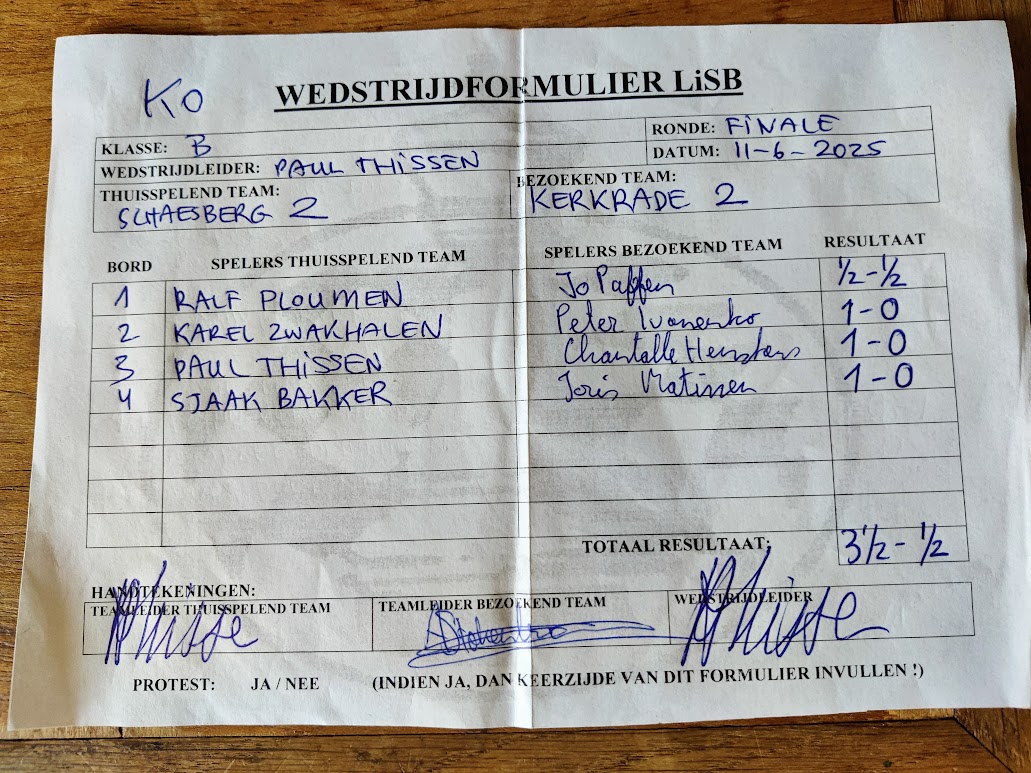 KO
WEDSTRIJDFORMULIER LiSB
KLASSE: B
RONDE: FINALE
WEDSTRIJDLEIDER: PAUL THISSEN
DATUM: 11-6-2025
THUISSPELEND TEAM:
SCHAESBERG 2
BEZOEKEND TEAM:
KERKRADE 2
BORD SPELERS THUISSPELEND TEAM SPELERS BEZOEKEND TEAM RESULTAAT
1 RALF PLOUMEN Jo Paffen ½-½
2 KAREL ZWAKHALEN Peter Ivanenko 1-0
3 PAUL THISSEN Chantalle 1-0
4 SJAAK BAKKER Joris 1-0
TOTAAL RESULTAAT: 3½-½
HANDTEKENINGEN:
TEAMLEIDER THUISSPELEND TEAM TEAMLEIDER BEZOEKEND TEAM WEDSTRIJDLEIDER
PROTEST: JA / NEE (INDIEN JA, DAN KEERZIJDE VAN DIT FORMULIER INVULLEN !)